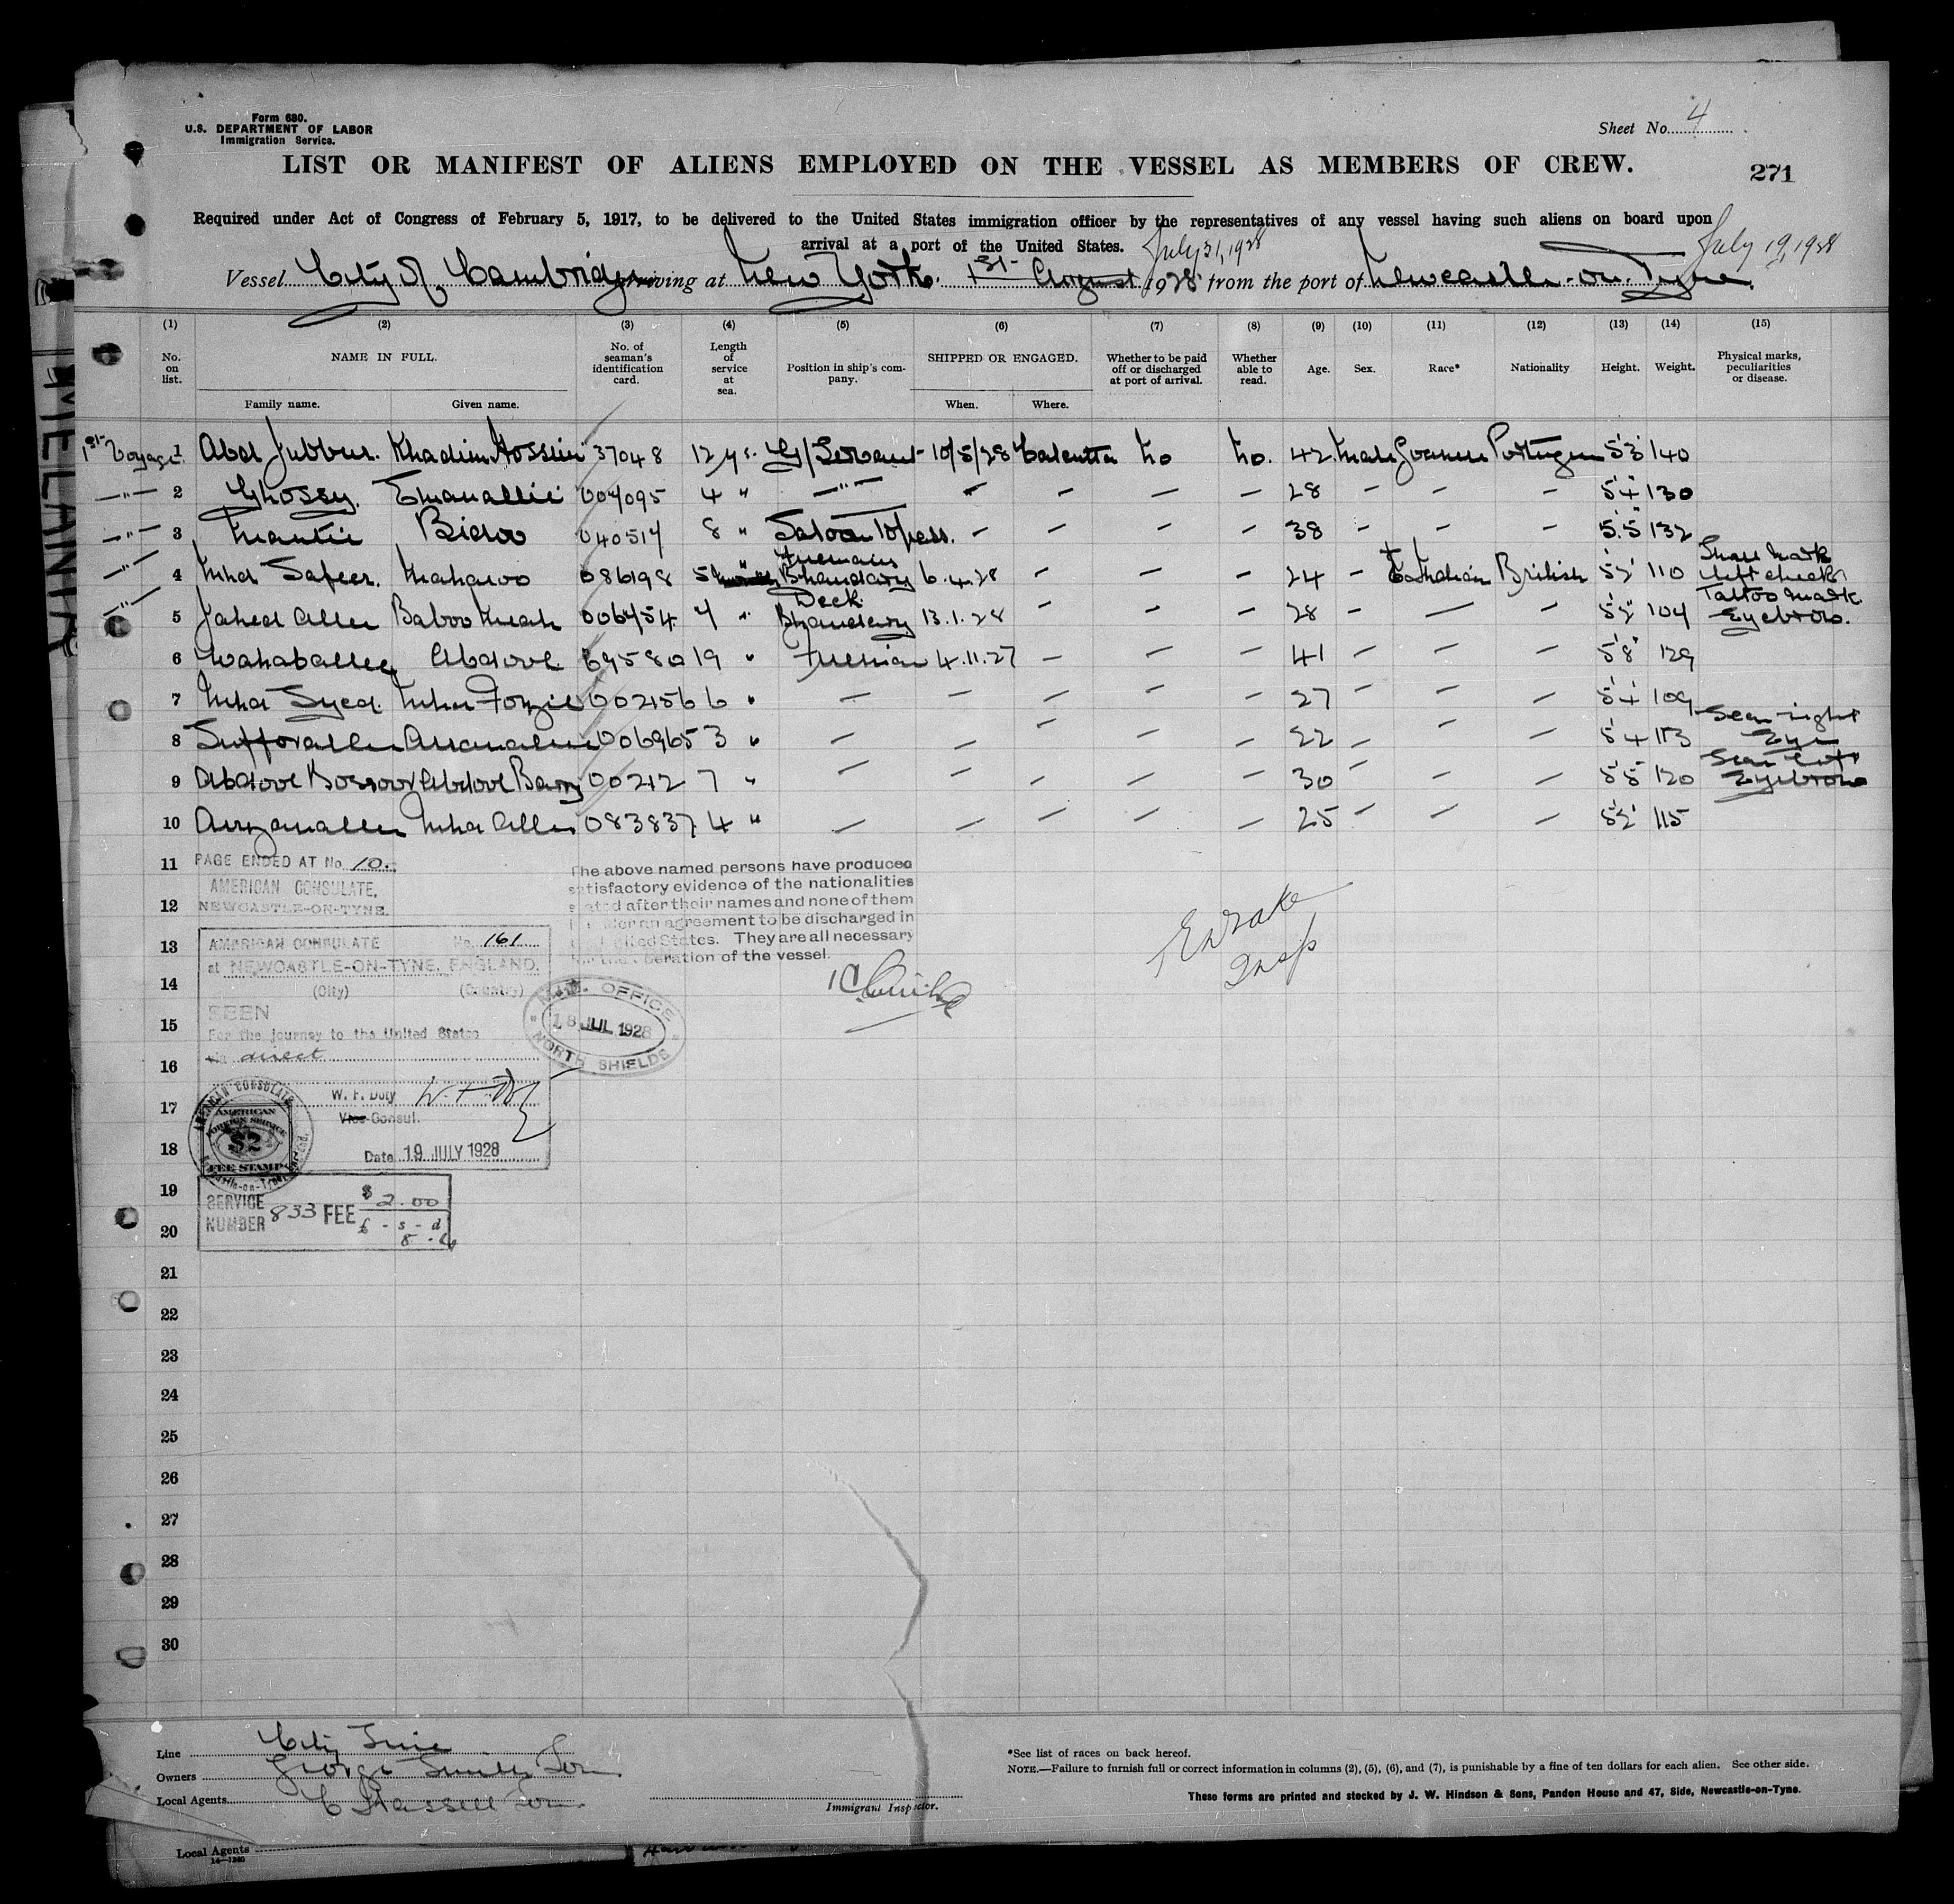 Form 680.
U.S. DEPARTMENT OF LABOR
Immigration Service.
Sheet No. 4
LIST OR MANIFEST OF ALIENS EMPLOYED ON THE VESSEL AS MEMBERS OF CREW.
271
Required under Act of Congress of February 5, 1917, to be delivered to the United States immigration officer by the representatives of any vessel having such aliens on board upon
arrival at a port of the United States. July 31, 1928 July 19, 1928
Vessel City of Cambridge arriving at New York. 1st August 1928 from the port of Newcastle-on-Tyne
(1) (2) (3) (4) (5) (6) (7) (8) (9) (10) (11) (12) (13) (14) (15)
No. on list. NAME IN FULL. No. of seaman's identification card. Length of service at sea. Position in ship's company. SHIPPED OR ENGAGED. Whether to be paid off or discharged at port of arrival. Whether able to read. Age. Sex. Race* Nationality Height. Weight. Physical marks, peculiarities or disease.
Family name. Given name. When. Where.
1st Voyage. 1 Abdl Jubbur. Khadim Hossein 37048 12 ys. G/Servant 10/5/28 Calcutta No No. 42 Male Portuguese 5'3" 140
—"— 2 Ghossy. Emanallie 4 " —"— — — — — 28 — — — 5'4" 130
—"— 3 Bidoo 8 " Saloon Topass. — — — — 38 — — — 5.5" 132
—"— 4 Mhd Safeer. 086198 5 " Fireman's Bhandary 6.4.28 — — — 24 — British 5'2" 110 Small Mark left cheek
—"— 5 Baboo Meah " Deck Bhandary 13.1.28 — — — 28 — — — 5'2" 104 Tattoo Mark Eyebrow.
6 Wahaballee Abdool 69580 19 " Fireman 4.11.27 — — — 41 — — — 5'8" 129
7 Mhd Syed. 6 " — — — — — 27 — — — 5'4" 109
8 3 " — — — — — 22 — — — 5'4 113 Scar right Eye
9 Abdool 00212 7 " — — — — — 30 — — — 5'5" 120 Scar left Eyebrow
10 Mhd Allee 083837 4 " — — — — — 25 — — — 5'2" 115
11 PAGE ENDED AT No. 10.
AMERICAN CONSULATE,
12 NEWCASTLE-ON-TYNE.
The above named persons have produced
satisfactory evidence of the nationalities
stated after their names and none of them
an agreement to be discharged in
United States. They are all necessary
operation of the vessel.
Insp
13 AMERICAN CONSULATE No. 161
at NEWCASTLE-ON-TYNE, ENGLAND.
14 (City) (Country)
15 SEEN
For the journey to the United States
16 via direct
IMM. OFFICE
18 JUL 1928
NORTH SHIELDS
17 W. F. Duty
Vice Consul.
18 Date 19 JULY 1928
AMERICAN CONSULATE
AMERICAN
FOREIGN SERVICE
$2
FEE STAMP
19 SERVICE NUMBER 833 FEE $ 2.00
20 £ - s - d
21
22
23
24
25
26
27
28
29
30
Line City Line
Owners George Smith & Son
Local Agents
Immigrant Inspector.
*See list of races on back hereof.
NOTE.—Failure to furnish full or correct information in columns (2), (5), (6), and (7), is punishable by a fine of ten dollars for each alien. See other side.
These forms are printed and stocked by J. W. Hindson & Sons, Pandon House and 47, Side, Newcastle-on-Tyne.
Local Agents